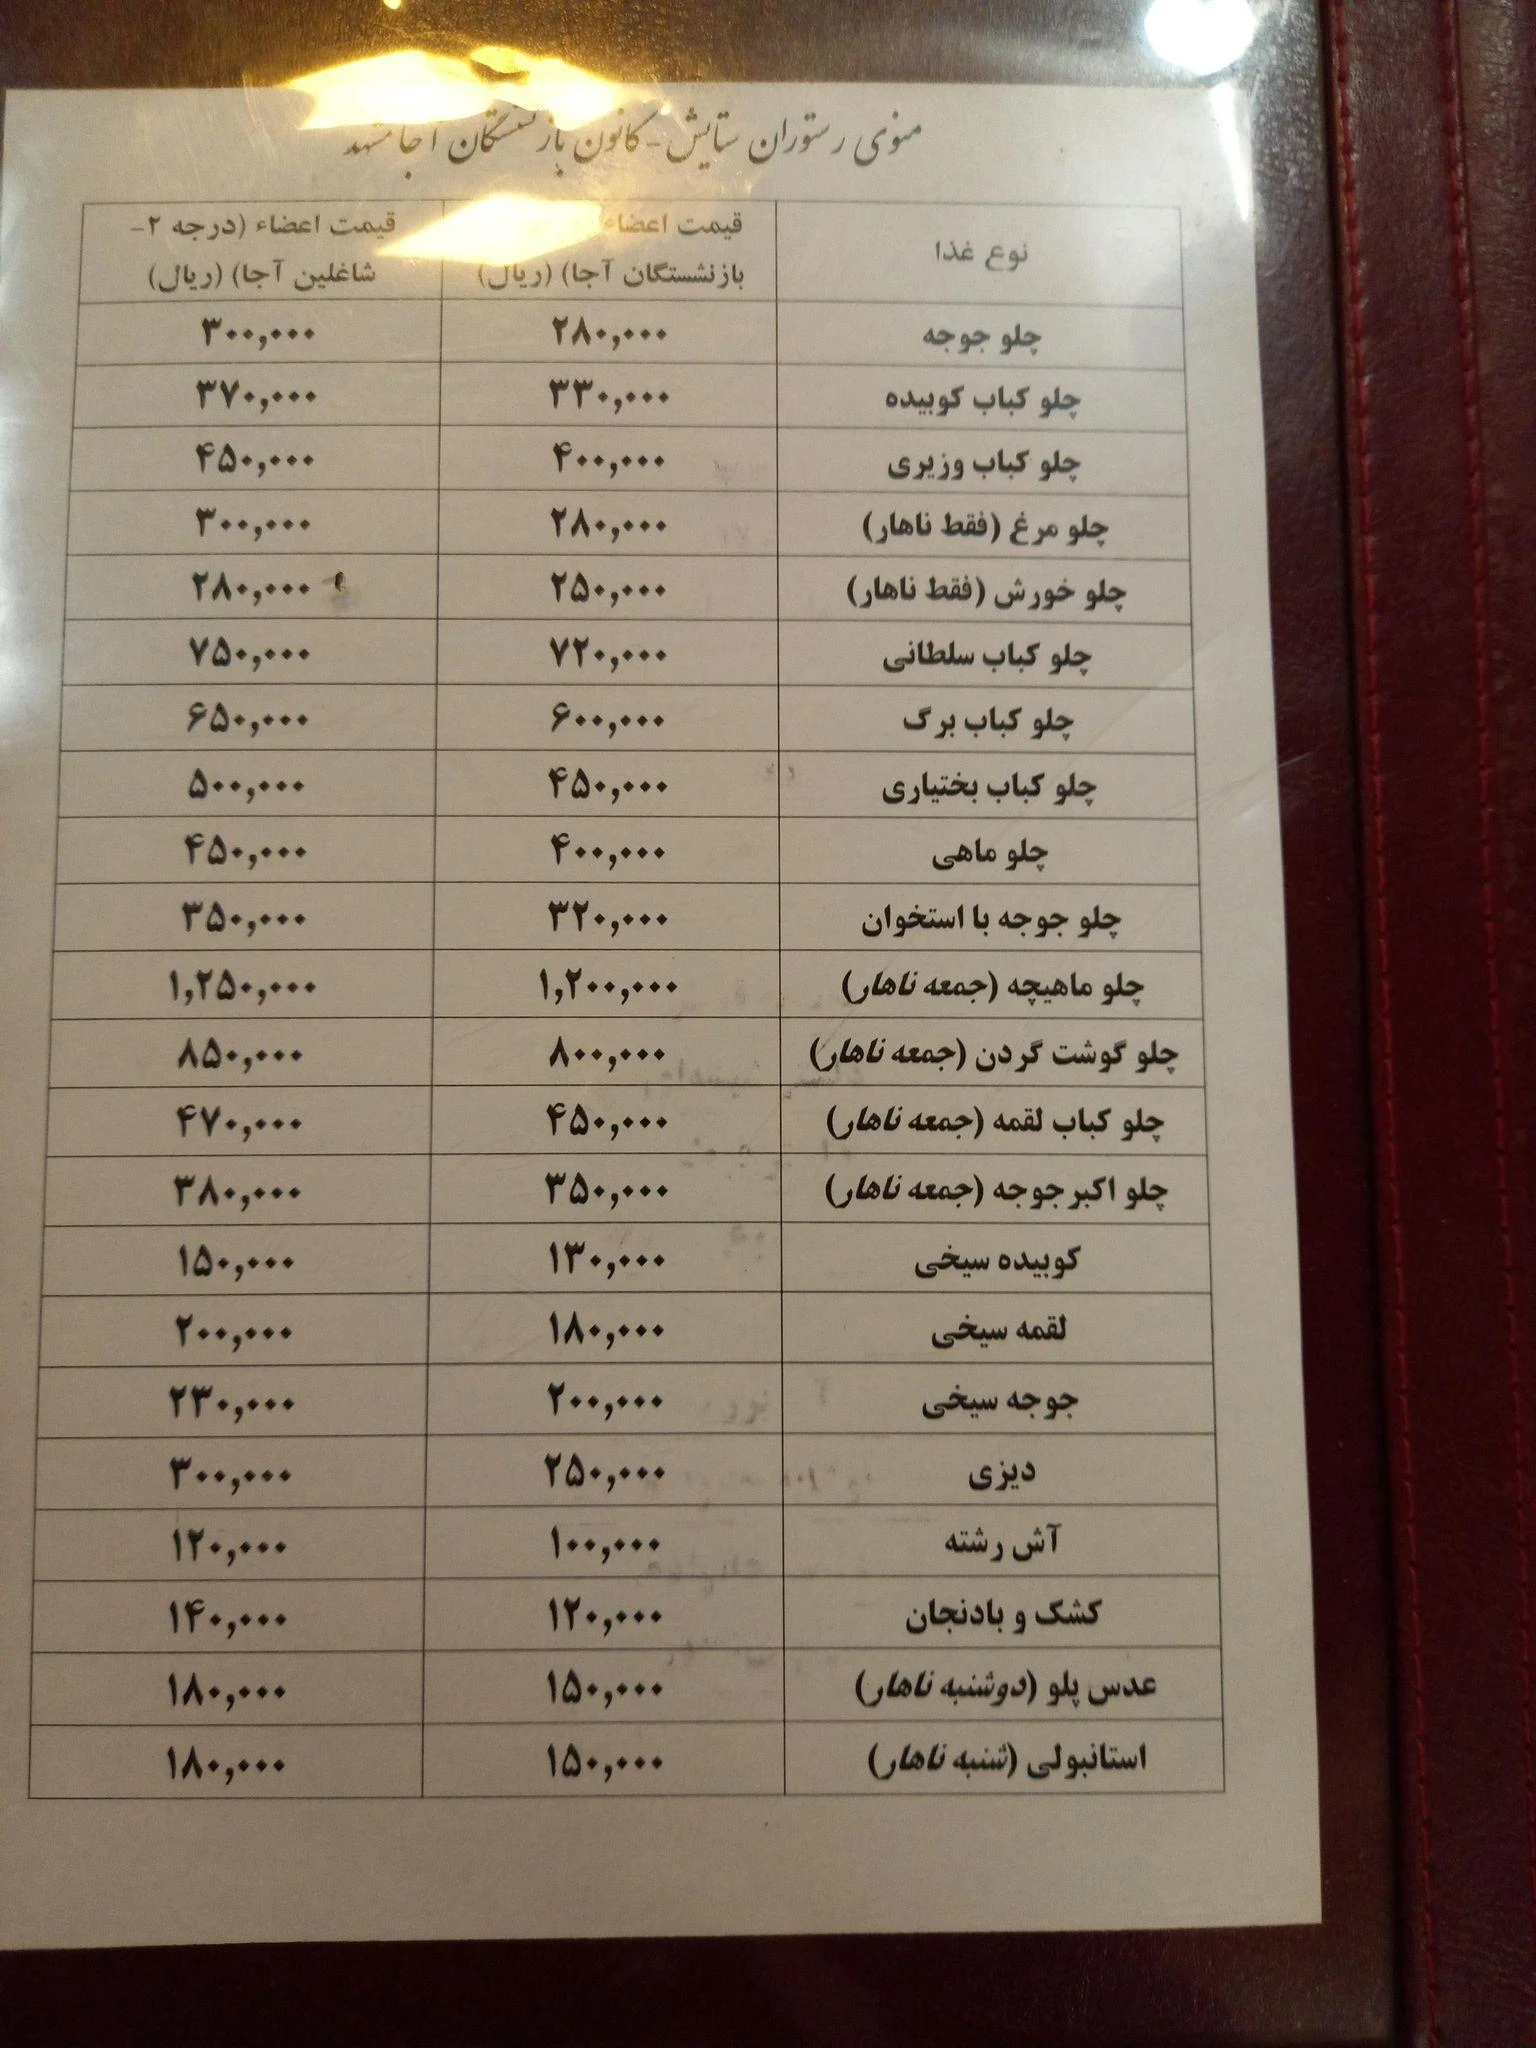 منوی رستوران ستایش - کانون بازنشستگان آجا مشهد
نوع غذا قیمت اعضاء قیمت اعضاء (درجه ۲-
بازنشستگان آجا) (ریال) شاغلین آجا) (ریال)
چلو جوجه ۲۸۰,۰۰۰ ۳۰۰,۰۰۰
چلو کباب کوبیده ۳۳۰,۰۰۰ ۳۷۰,۰۰۰
چلو کباب وزیری ۴۰۰,۰۰۰ ۴۵۰,۰۰۰
چلو مرغ (فقط ناهار) ۲۸۰,۰۰۰ ۳۰۰,۰۰۰
چلو خورش (فقط ناهار) ۲۵۰,۰۰۰ ۲۸۰,۰۰۰
چلو کباب سلطانی ۷۲۰,۰۰۰ ۷۵۰,۰۰۰
چلو کباب برگ ۶۰۰,۰۰۰ ۶۵۰,۰۰۰
چلو کباب بختیاری ۴۵۰,۰۰۰ ۵۰۰,۰۰۰
چلو ماهی ۴۰۰,۰۰۰ ۴۵۰,۰۰۰
چلو جوجه با استخوان ۳۲۰,۰۰۰ ۳۵۰,۰۰۰
چلو ماهیچه (جمعه ناهار) ۱,۲۰۰,۰۰۰ ۱,۲۵۰,۰۰۰
چلو گوشت گردن (جمعه ناهار) ۸۰۰,۰۰۰ ۸۵۰,۰۰۰
چلو کباب لقمه (جمعه ناهار) ۴۵۰,۰۰۰ ۴۷۰,۰۰۰
چلو اکبر جوجه (جمعه ناهار) ۳۵۰,۰۰۰ ۳۸۰,۰۰۰
کوبیده سیخی ۱۳۰,۰۰۰ ۱۵۰,۰۰۰
لقمه سیخی ۱۸۰,۰۰۰ ۲۰۰,۰۰۰
جوجه سیخی ۲۰۰,۰۰۰ ۲۳۰,۰۰۰
دیزی ۲۵۰,۰۰۰ ۳۰۰,۰۰۰
آش رشته ۱۰۰,۰۰۰ ۱۲۰,۰۰۰
کشک و بادنجان ۱۲۰,۰۰۰ ۱۴۰,۰۰۰
عدس پلو (دوشنبه ناهار) ۱۵۰,۰۰۰ ۱۸۰,۰۰۰
استانبولی (شنبه ناهار) ۱۵۰,۰۰۰ ۱۸۰,۰۰۰